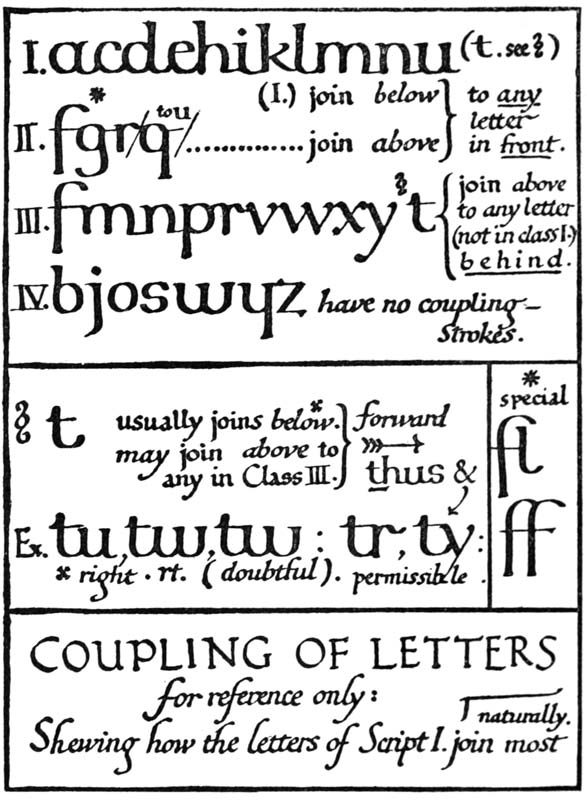 I. acdehiklmnu (t. see §)
(I.) join below } to any
II. f*gr/q/ to u ............... join above } letter in front.
III. fmnprvwxy't { join above to any letter (not in class I.) behind.
IV. bjoswyz have no coupling-
strokes.
t usually joins below.* } forward
may join above to
any in Class III. } thus &
Ex. tu, tw, tw : tr, ty :
* right . rt. (doubtful). permissible .
* special
fl
ff
COUPLING OF LETTERS
for reference only:
Shewing how the letters of Script I. join most
naturally.